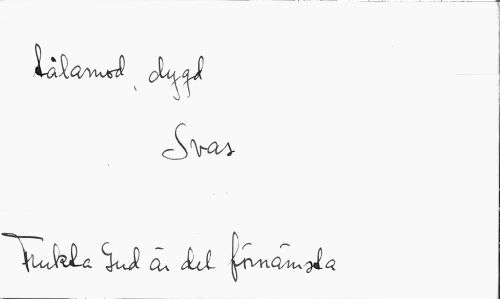 tålamod, dygd
Svas
Frukta Gud är det förnämsta